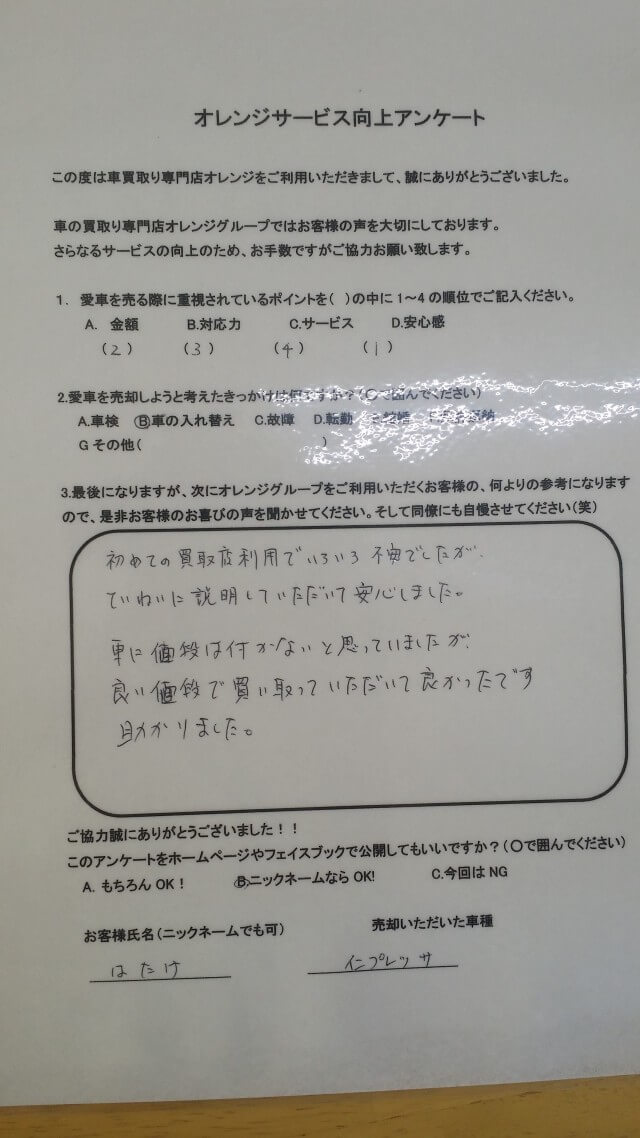 オレンジサービス向上アンケート
この度は車買取り専門店オレンジをご利用いただきまして、誠にありがとうございました。
車の買取り専門店オレンジグループではお客様の声を大切にしております。
さらなるサービスの向上のため、お手数ですがご協力お願い致します。
1. 愛車を売る際に重視されているポイントを( )の中に1～4の順位でご記入ください。
A. 金額 B.対応力 C.サービス D.安心感
(2) (3) (4) (1)
2.愛車を売却しようと考えたきっかけは何ですか?(〇で囲んでください)
A.車検 B車の入れ替え C.故障 D.転勤
Gその他( )
3.最後になりますが、次にオレンジグループをご利用いただくお客様の、何よりの参考になります
ので、是非お客様のお喜びの声を聞かせてください。そして同僚にも自慢させてください(笑)
初めての買取店利用でいろいろ不安でしたが、
ていねいに説明していただいて安心しました。
車に値段は付かないと思っていましたが、
良い値段で買い取っていただいて良かったです
助かりました。
ご協力誠にありがとうございました!!
このアンケートをホームページやフェイスブックで公開してもいいですか?(〇で囲んでください)
A. もちろんOK! B.ニックネームならOK! C.今回はNG
お客様氏名(ニックネームでも可) 売却いただいた車種
はたけ インプレッサ